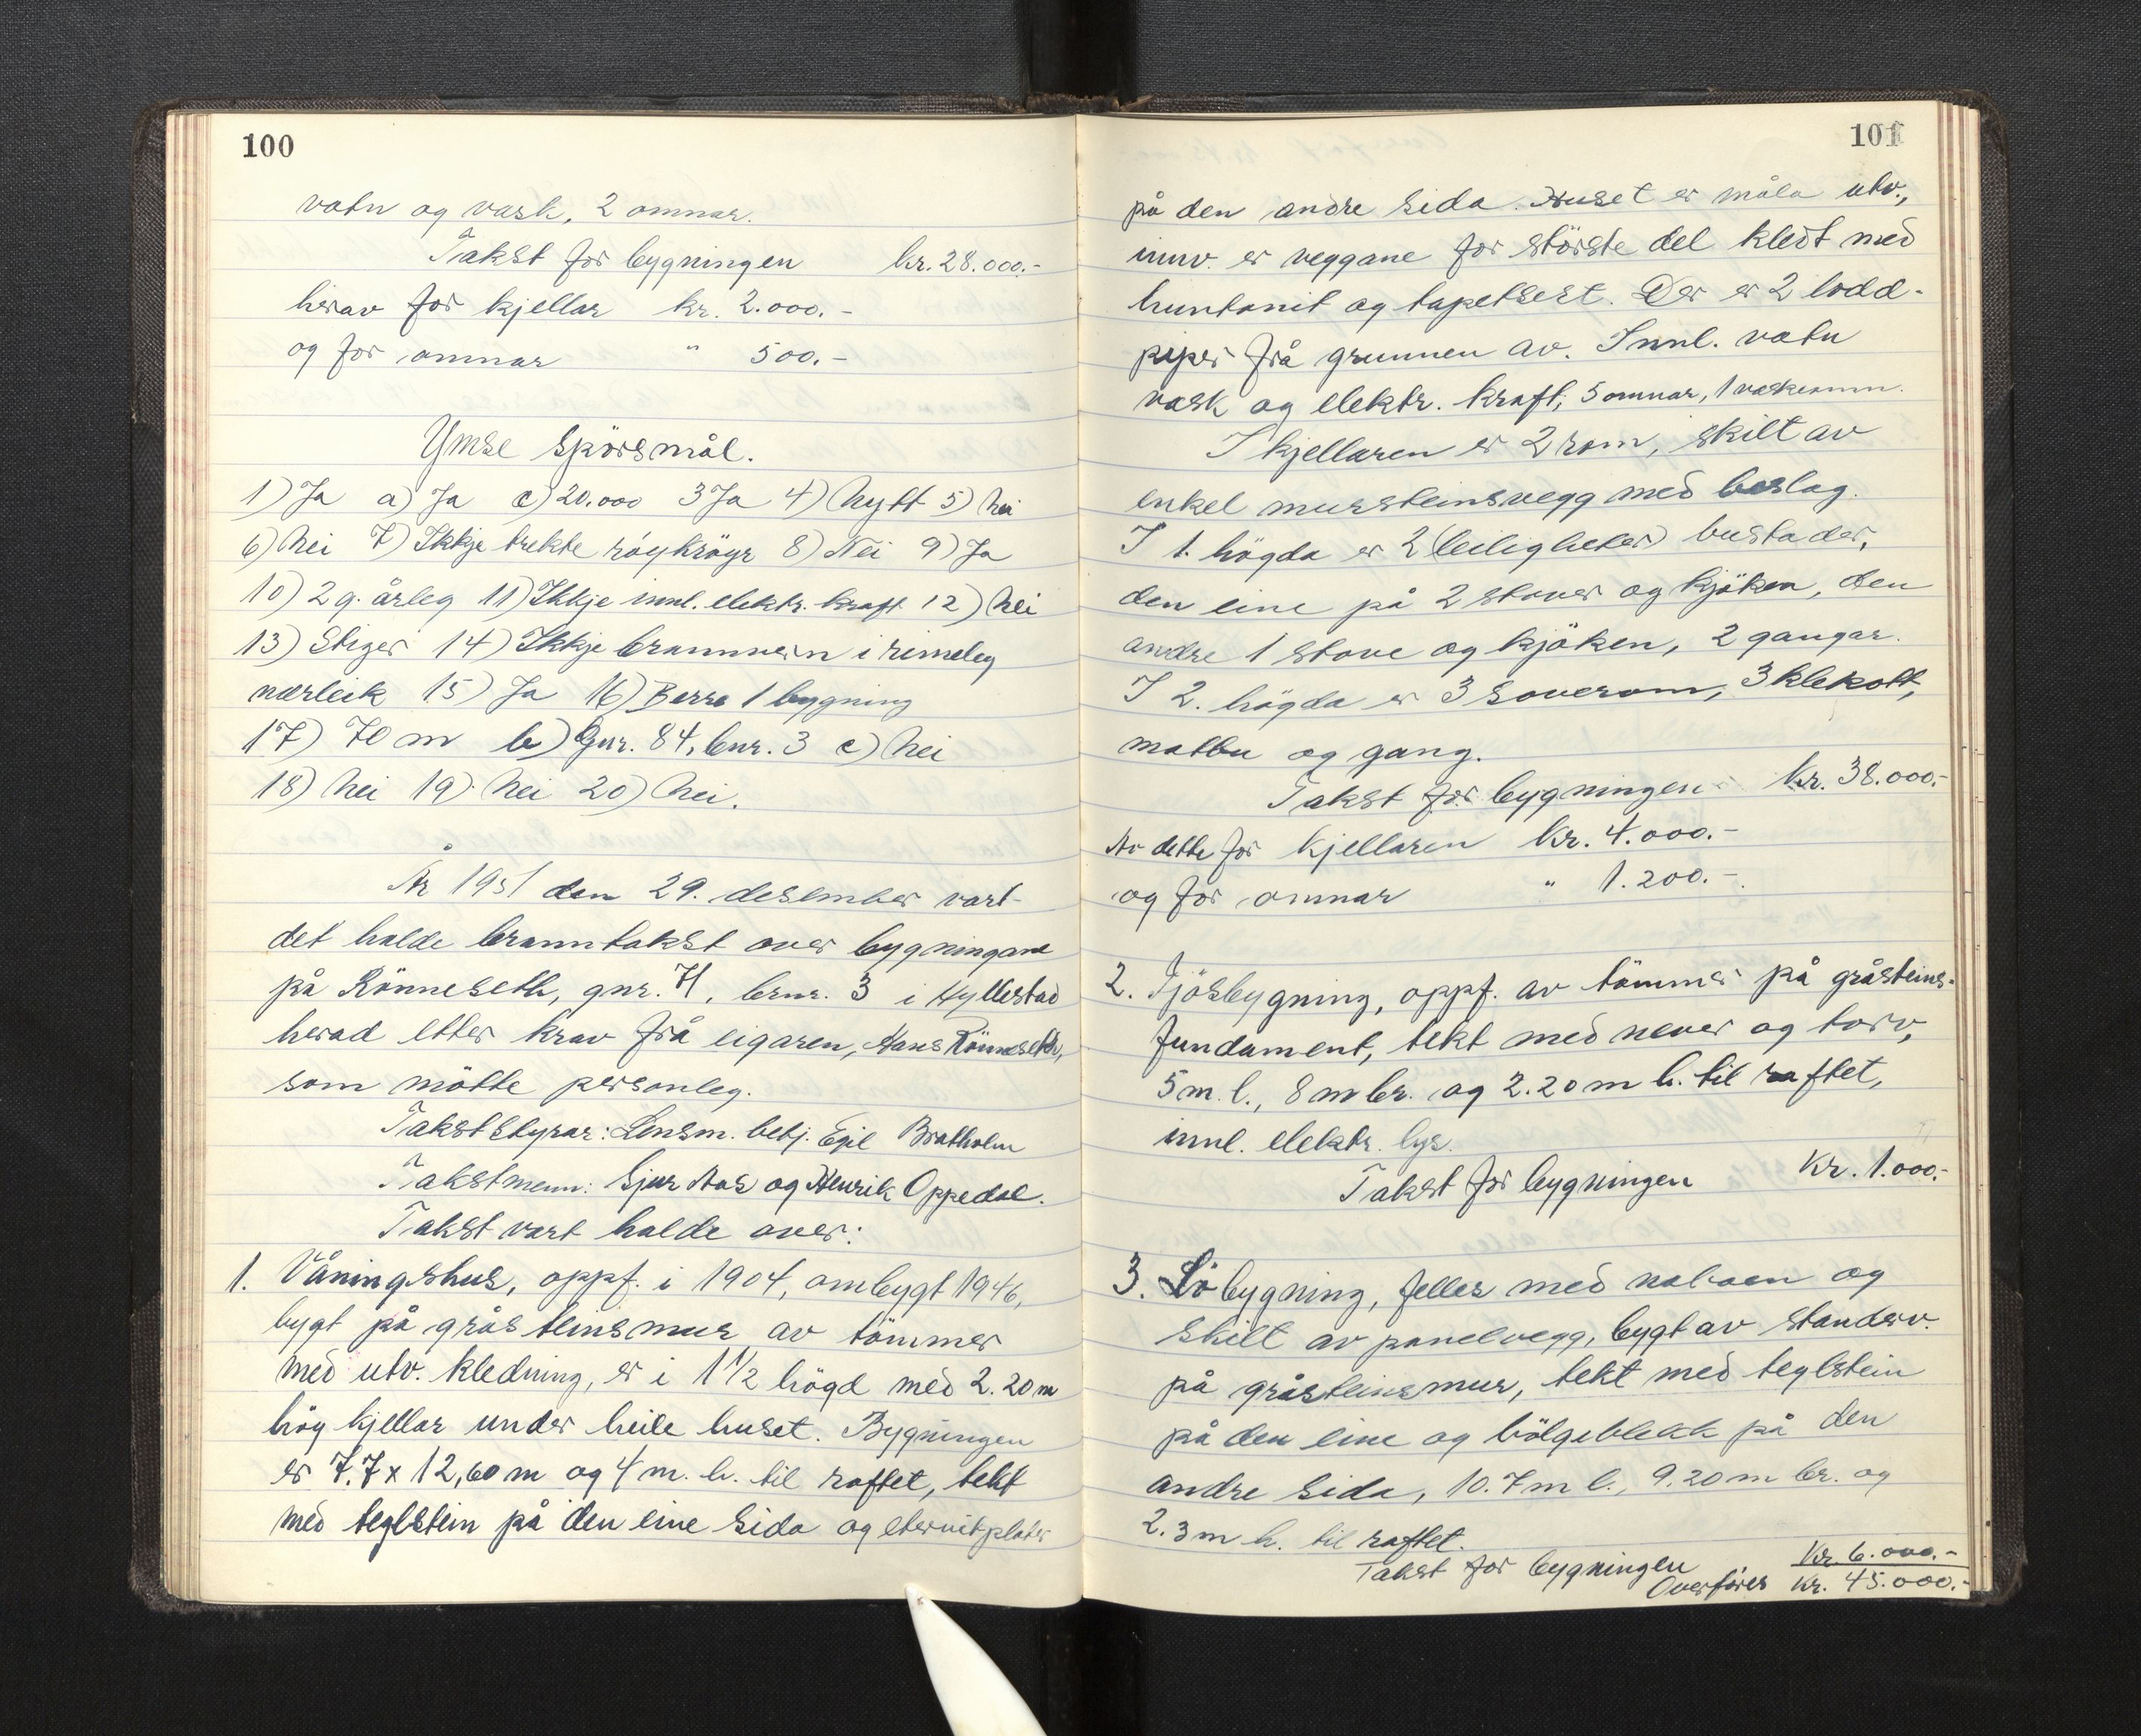 100
vatn og vask, 2 omnar.
Takst for bygningen kr. 28.000.-
herav for kjellar kr. 2.000.-
og for omnar " 500.-
Ymse spörsmål.
1) Ja a) Ja c) 20.000 3 Ja 4) Nytt 5) Nei
6) Nei 7) Ikkje trekte röykröyr 8) Nei 9) Ja
10) 2 g. årleg 11) Ikkje innl. elektr. kraft 12) Nei
13) Stiger 14) Ikkje brannvern i rimeleg
nærleik 15) Ja 16) Berre 1 bygning
17) 70 m b) Gnr. 84, bnr. 3 c) Nei
18) Nei 19) Nei 20) Nei.
År 1951 den 29. desember vart
det halde branntakst over bygningane
på Rönneseth, gnr. 71, brnr. 3 i Hyllestad
herad etter krav frå eigaren, Hans Rönneseth,
som mötte personleg.
Takststyrar: Lensm. betj. Egil Bratholm
Takstmenn: Sjur Aas og Henrik Oppedal.
Takst vart halde over:
1. Våningshus, oppf. i 1904, ombygt 1946,
bygt på gråsteinsmur av tömmer
med utv. kledning, er i 1 1/2 högd med 2.20 m
hög kjellar under heile huset. Bygningen
er 7.7 x 12,60 m og 4 m. h. til raftet, tekt
med teglstein på den eine sida og eternitplater
101
på den andre sida. Huset er måla utv.,
innv. er veggane for störste del kledt med
huntonit og tapetsert. Der er 2 lodd-
piper frå grunnen av. Innl. vatn
vask og elektr. kraft, 5 omnar, 1 vaskeomn.
I kjellaren er 2 rom, skilt av
enkel mursteinsvegg med beslag.
I 1. högda er 2 (leiligheter) bustader,
den eine på 2 stover og kjöken, den
andre 1 stove og kjöken, 2 gangar.
I 2. högda er 3 soverom, 3 klekott,
matbu og gang.
Takst for bygningen kr. 38.000.-
Av dette for kjellaren kr. 4.000.-
og for omnar " 1.200.-
2. Fjösbygning, oppf. av tömmer på gråsteins-
fundament, tekt med never og torv,
5 m. l., 8 m br. og 2.20 m h. til raftet,
innl. elektr. lys.
Takst for bygningen Kr. 1.000.-
3. Löbygning, felles med naboen og
skilt av panelvegg, bygt av standerv.
på gråsteinsmur, tekt med teglstein
på den eine og bölgeblekk på den
andre sida, 10.7 m l., 9.20 m br. og
2.3 m h. til raftet.
Takst for bygningen Kr. 6.000.-
Overföres Kr. 45.000.-